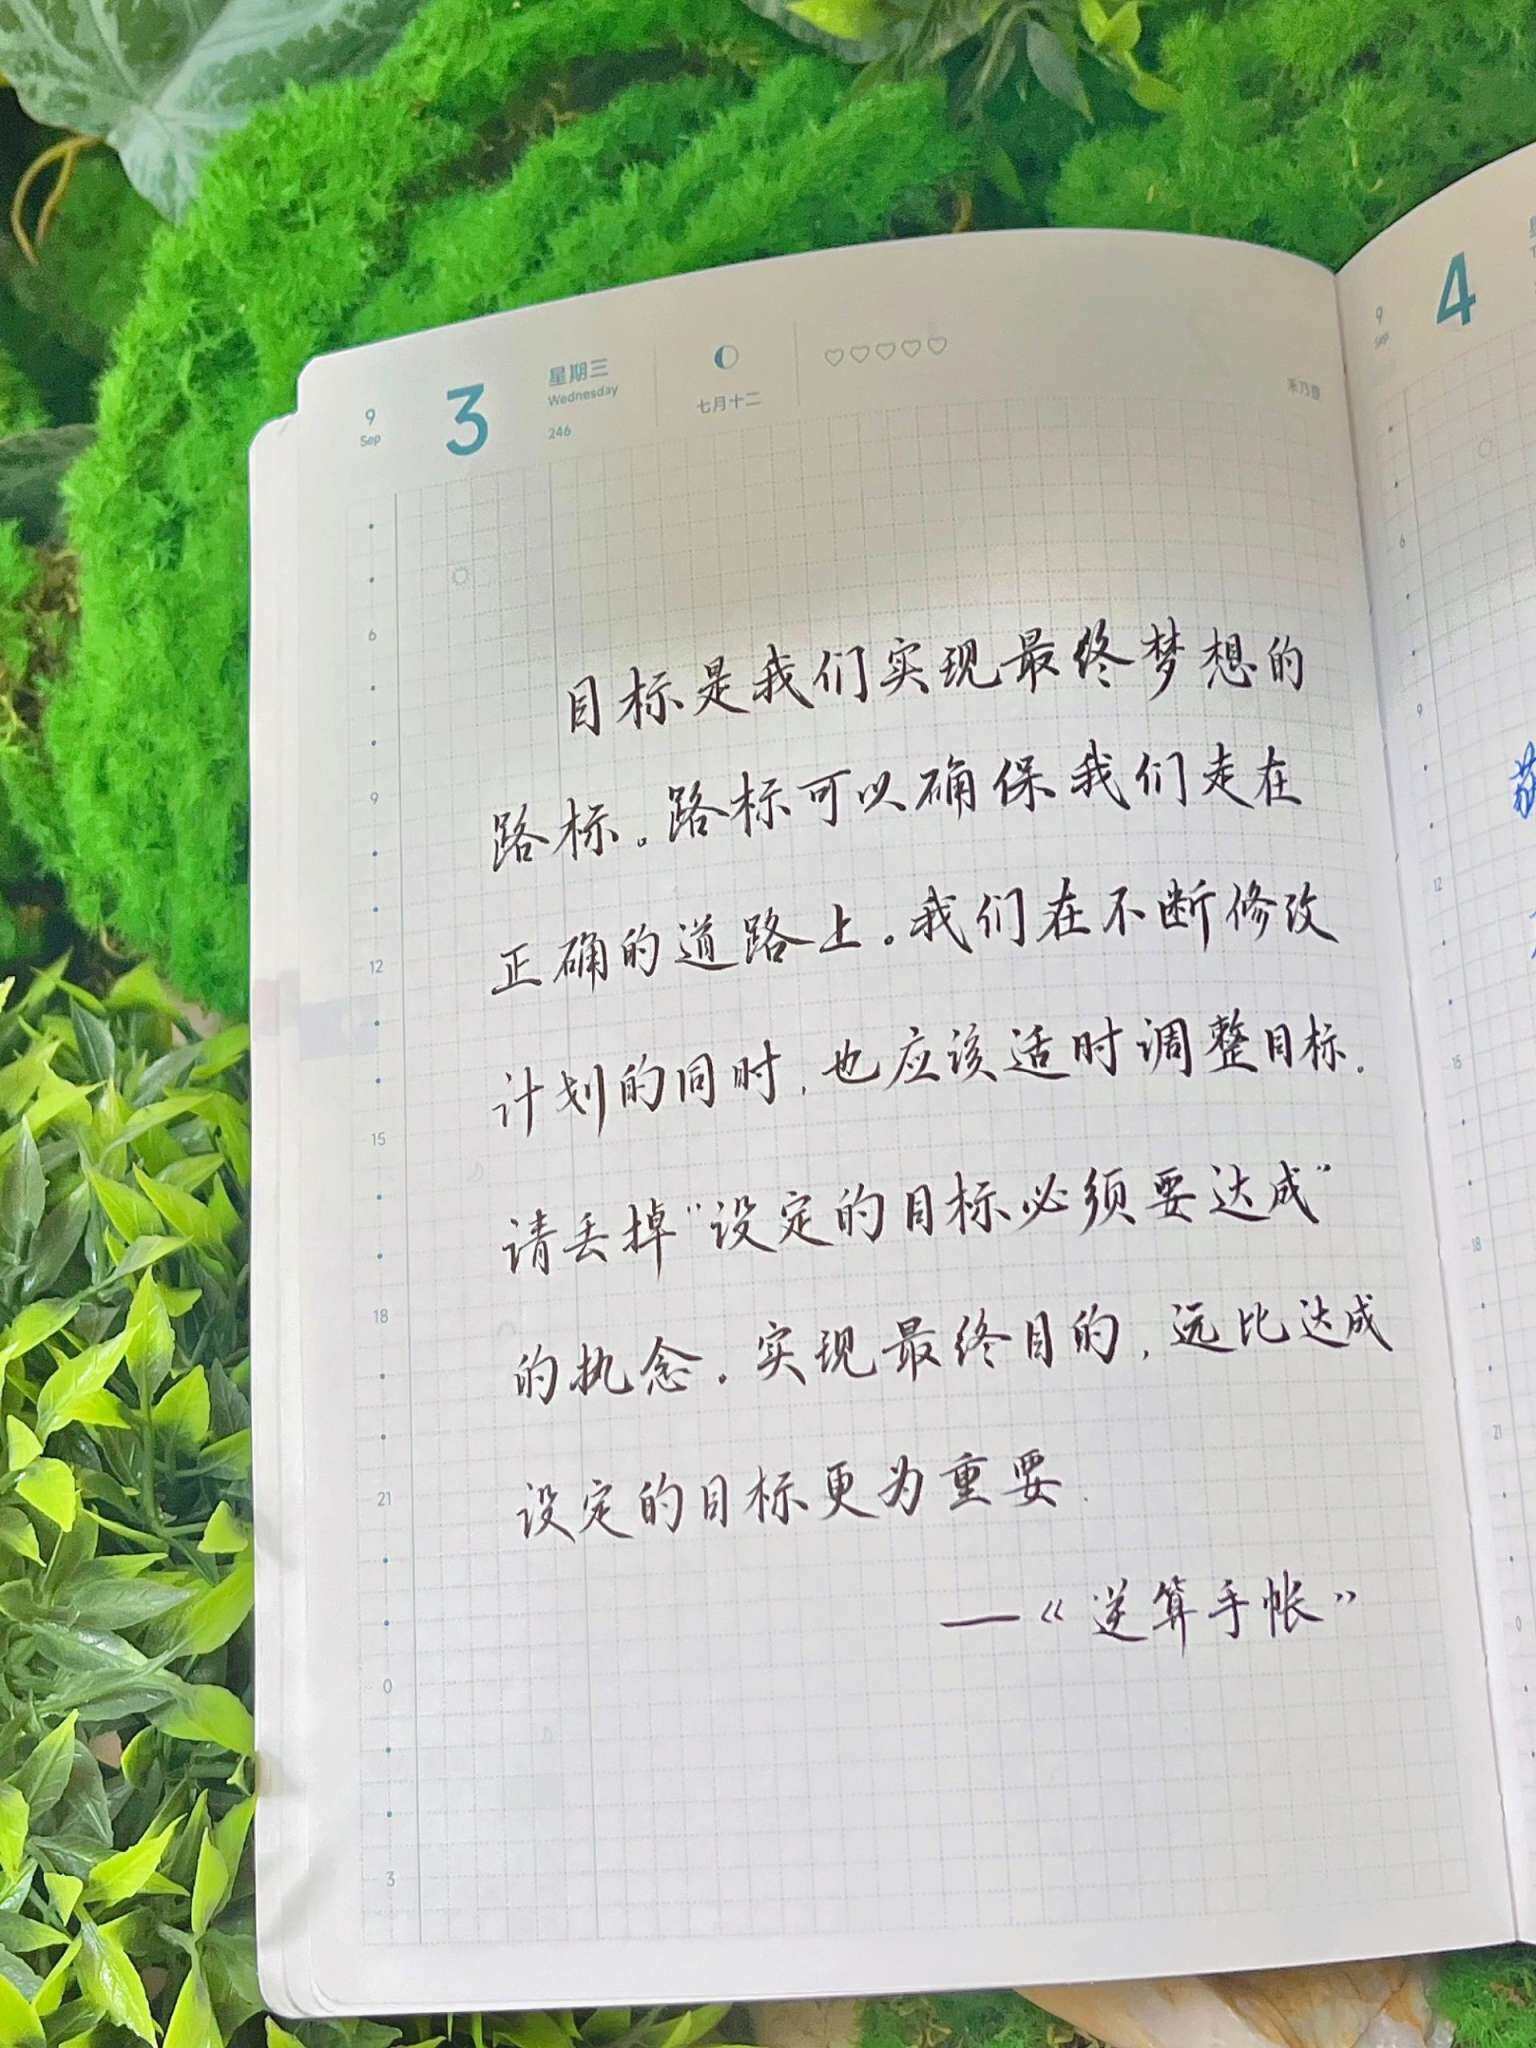 9
Sep
3
星期三
Wednesday
246
七月十二
禾乃登
6
9
12
15
18
21
0
3
目标是我们实现最终梦想的
路标。路标可以确保我们走在
正确的道路上。我们在不断修改
计划的同时,也应该适时调整目标.
请丢掉"设定的目标必须要达成"
的执念.实现最终目的,远比达成
设定的目标更为重要.
—《逆算手帐》
9
Sep
4
6
9
12
15
18
21
0